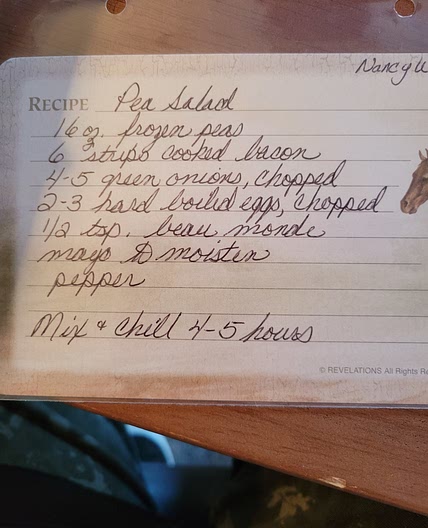 Nancy W
RECIPE Pea Salad
16 oz. frozen peas
6 strips cooked bacon
4-5 green onions, chopped
2-3 hard boiled eggs, chopped
1/2 tsp. beau monde
mayo to moisten
pepper
Mix & Chill 4-5 hours
© REVELATIONS All Rights Re